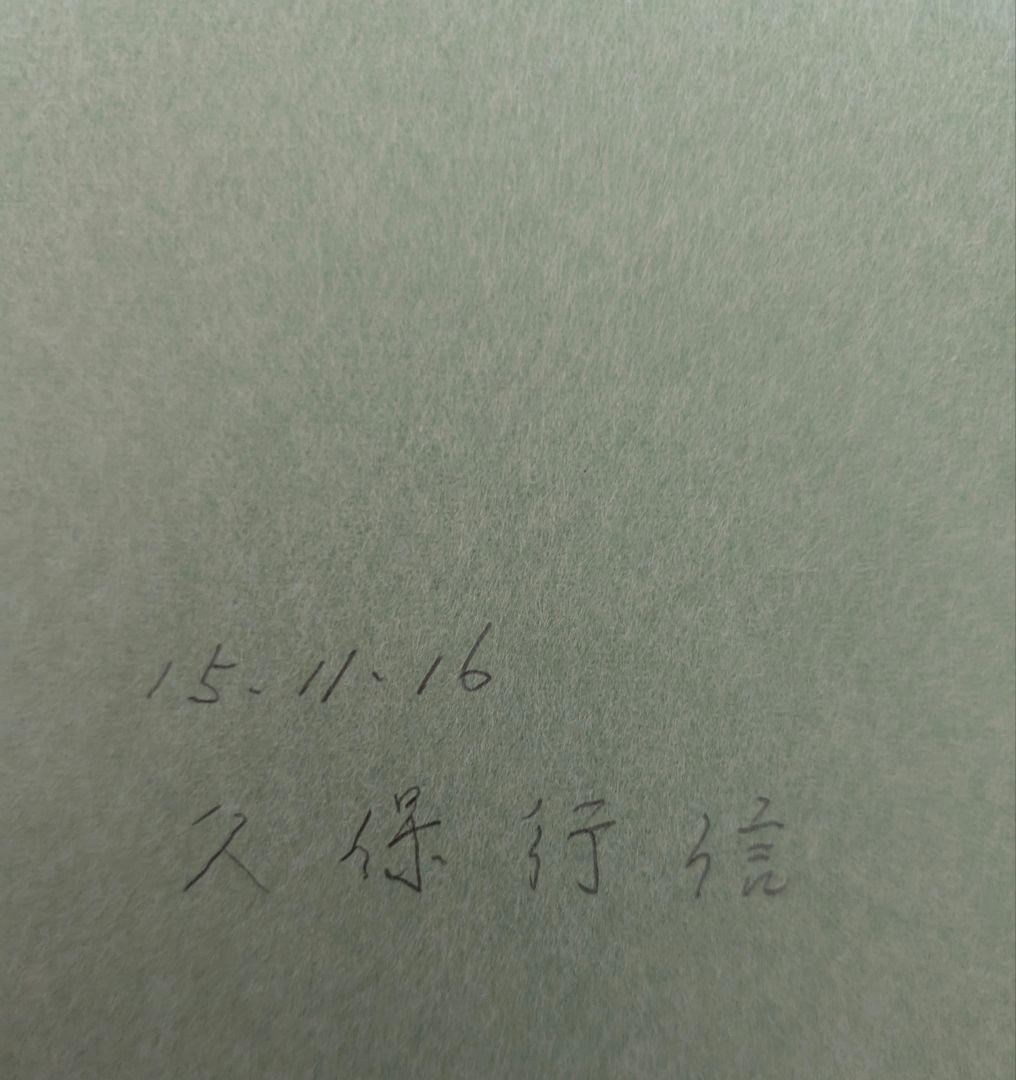 15.11.16
久保行信